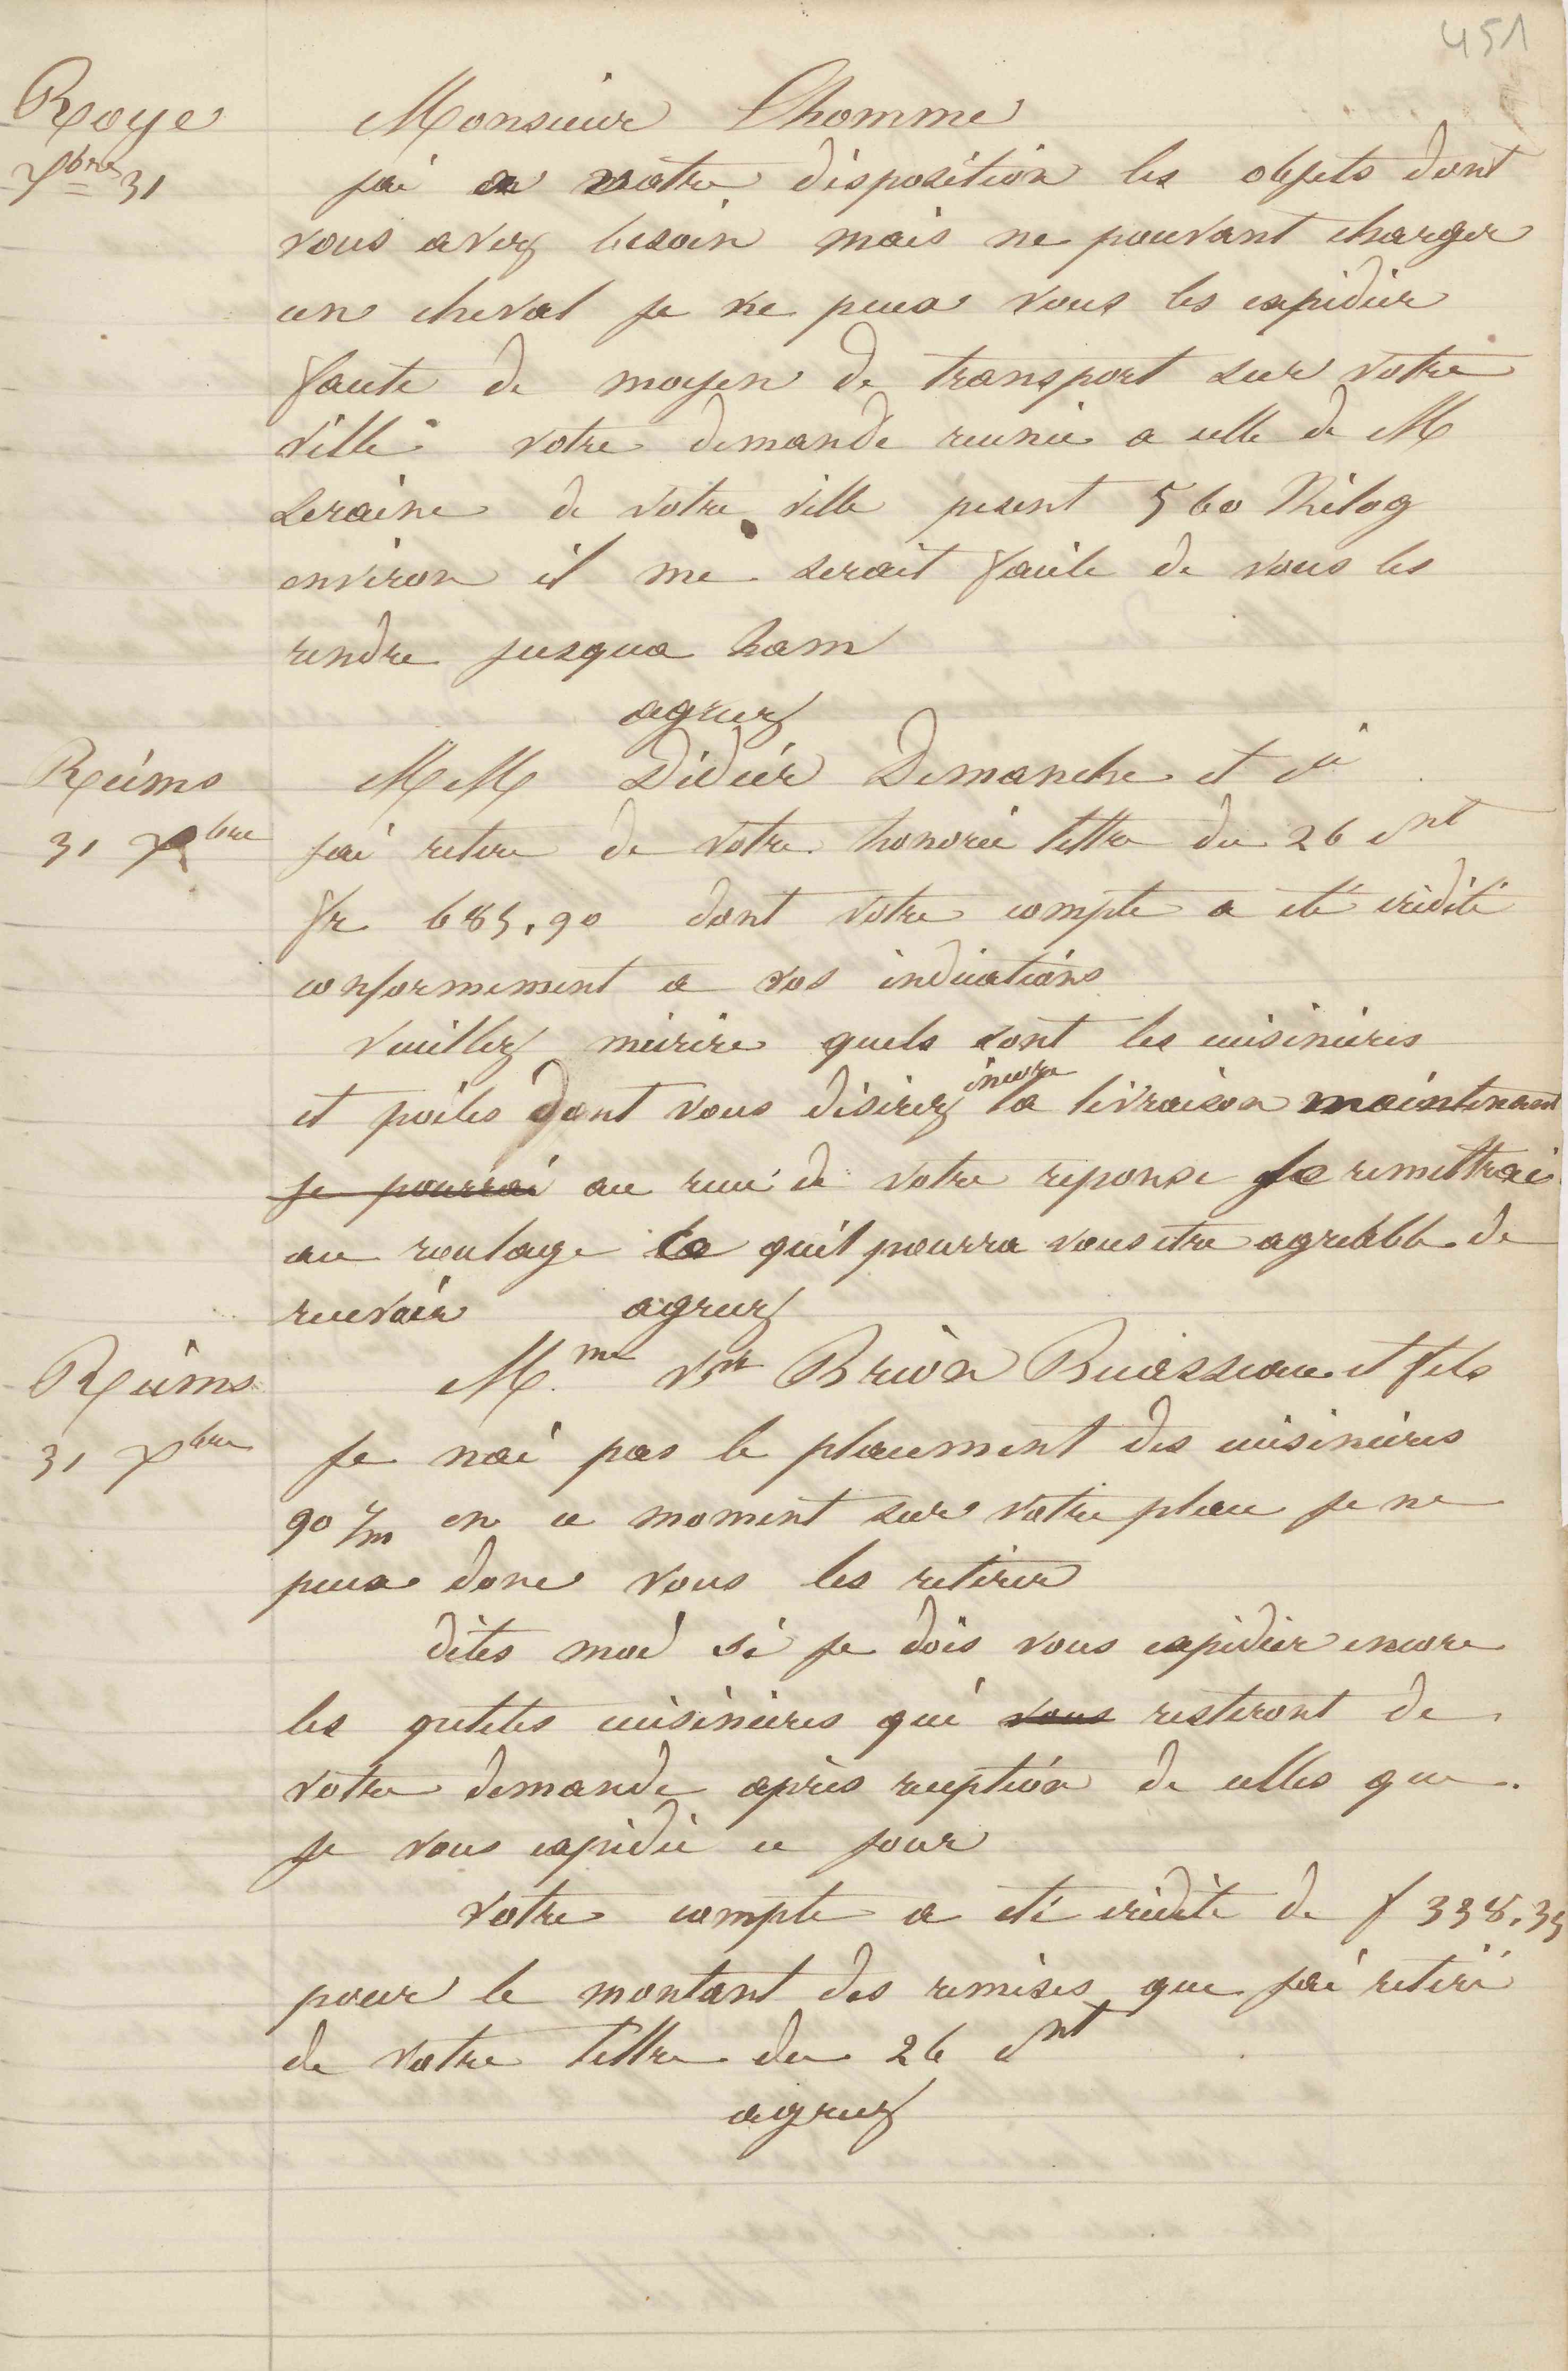 451
Roye
Xbre 31
Monsieur Lhomme
jai a votre disposition les objets dont
vous avez besoin mais ne pouvant charger
un cheval je ne peux vous les expedier
faute de moyen de transport sur votre
ville votre demande reunie a celle de M
Leraine de votre ville pesent 560 Kilog
environ il me serait facile de vous les
rendre jusqua ham
agreez
Reims
31 Xbre
MM Didier Demanche et Cie
jai retire de votre honorée lettre du 26 Ct
fr 685,90 dont votre compte a eté crédité
conformement a vos indications
veuillez mécrire quels sont les cuisinieres
et poëles dont vous désirez encore la livraison maintenant
je pourrai au recu de votre reponse je remettrai
au roulage ce quil pourra vous etre agreable de
recevoir agreez
Reims
31 Xbre
Mme Vve Brion Buasseau et fils
Je nai pas le placement des cuisinieres
90 c/m en ce moment sur votre place je ne
peux donc vous les retirer
dites moi si je dois vous expedier encore
les petites cuisinieres qui vous resteront de
votre demande après reception de celles que
je vous expedie ce jour
votre compte a eté crédité de f 338,35
pour le montant des remises que jai retiré
de votre lettre du 26 Ct
agreez